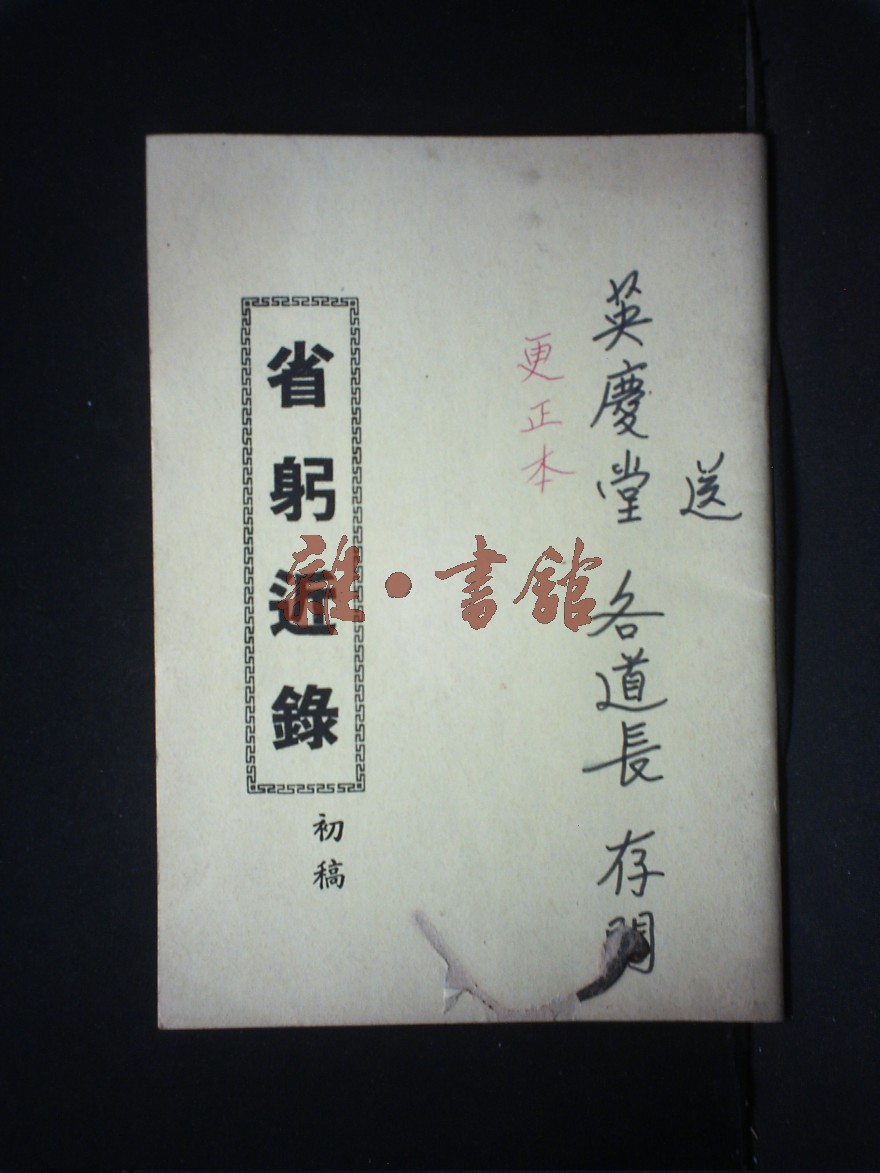 送
英慶堂 各道長 存閱
更正本
省躬近錄
初稿
雜·書館